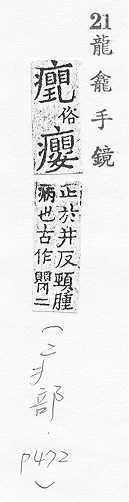 21 龍龕手鏡
俗癭
正於井反頸腫
病也古作二
(疒部. p472)